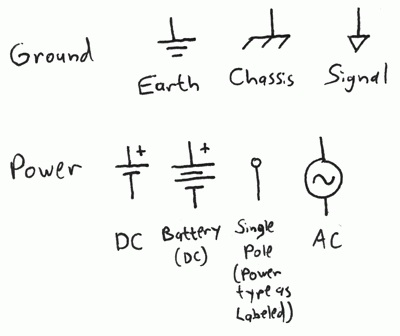 Ground
Earth
Chassis
Signal
Power
+
+
DC
Battery
(DC)
Single
Pole
(Power
type as
Labeled)
AC